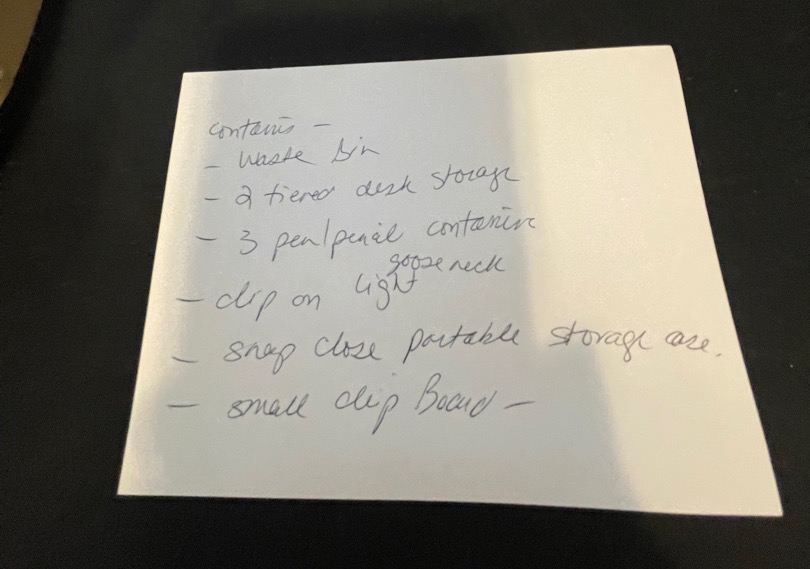 contains –
- waste bin
- 2 tiered desk storage
- 3 pen/pencil container
goose neck
- clip on light
- snap close portable storage case.
- small clip Board –